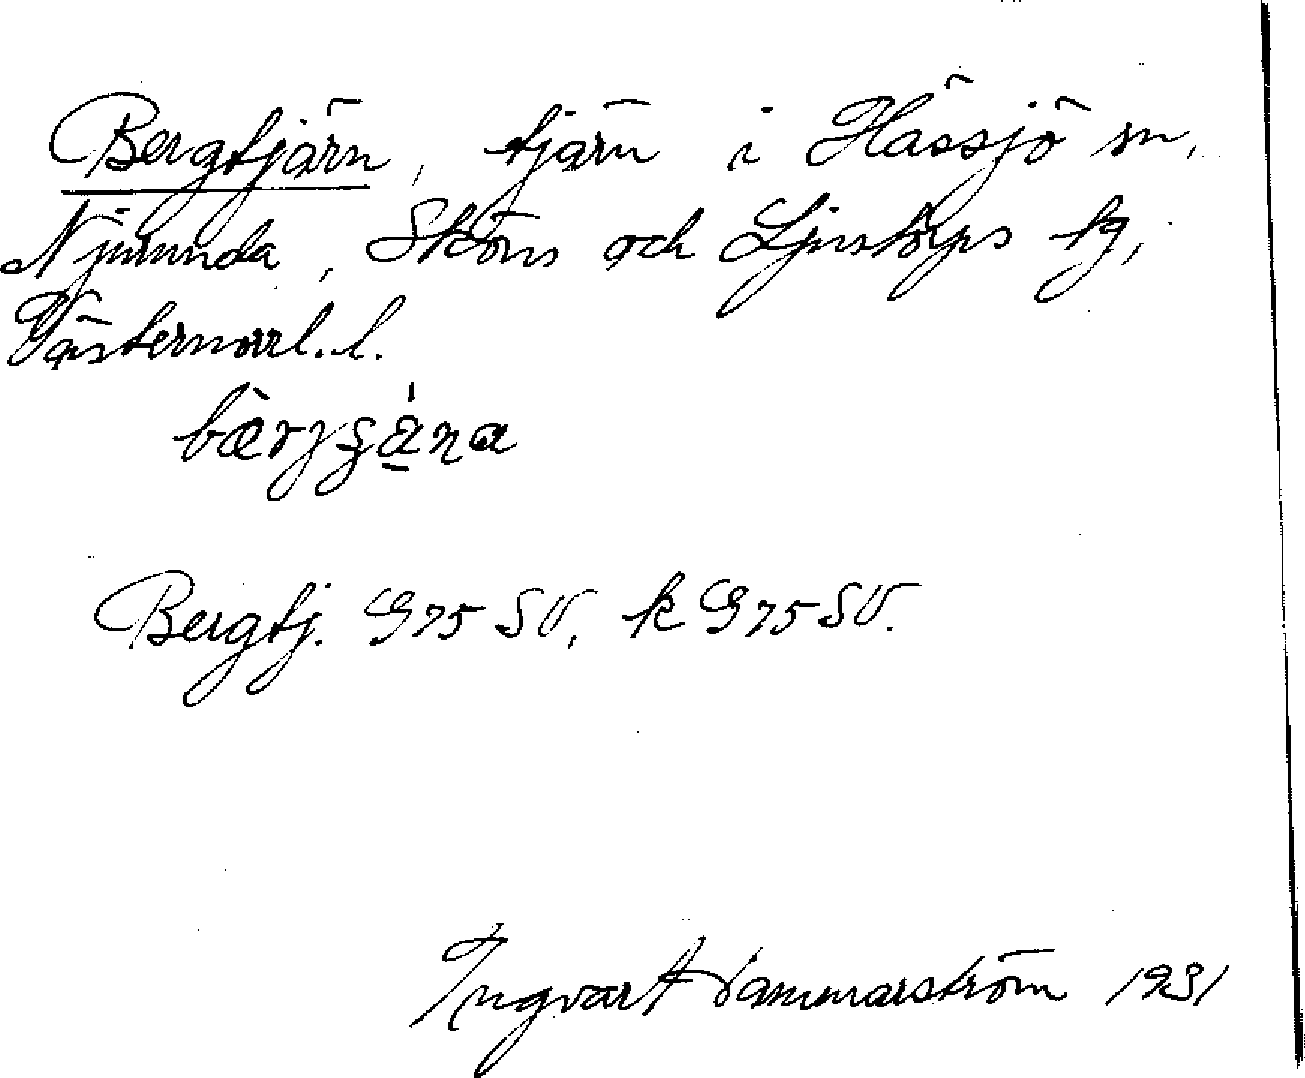 Bergtjärn, tjärn i Hässjö sn,
Njurunda, Sköns och Ljustorps tg,
Västernorrl. l.
Bergtj. G75 SV, k G75 SV.
Ingvart Hammarström 1931